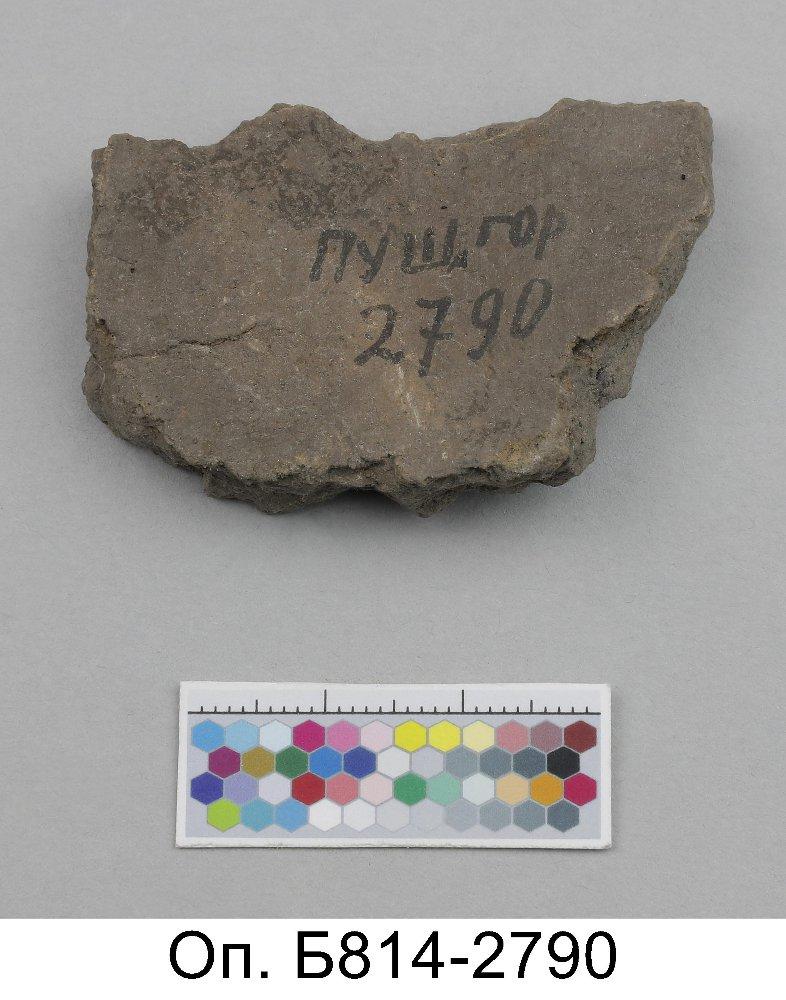 ПУЩ, ГОР
2790
Оп. Б814-2790